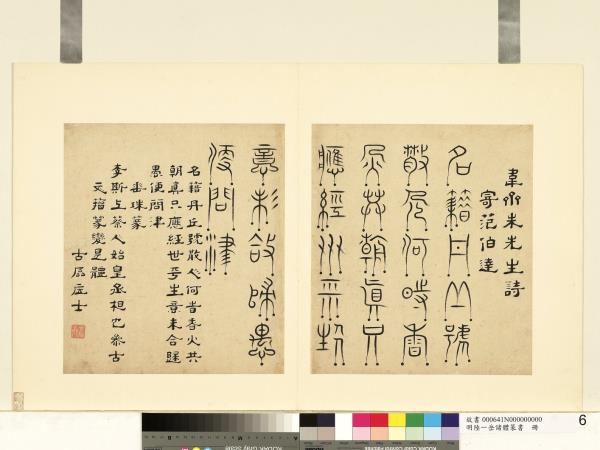 韋齋朱先生詩
寄范伯達
名籍丹丘號
散人何時香
火共朝真只
應經世平生
意未合歸愚
便問津
名籍丹丘號散人何旹香火共
朝真只應經世平生意未合歸
愚便問津
垂珠篆
李斯上蔡人始皇丞相也參古
文籀篆變是體
士
故書 000641N000000000
明陸一岳諸體篆書 冊
6